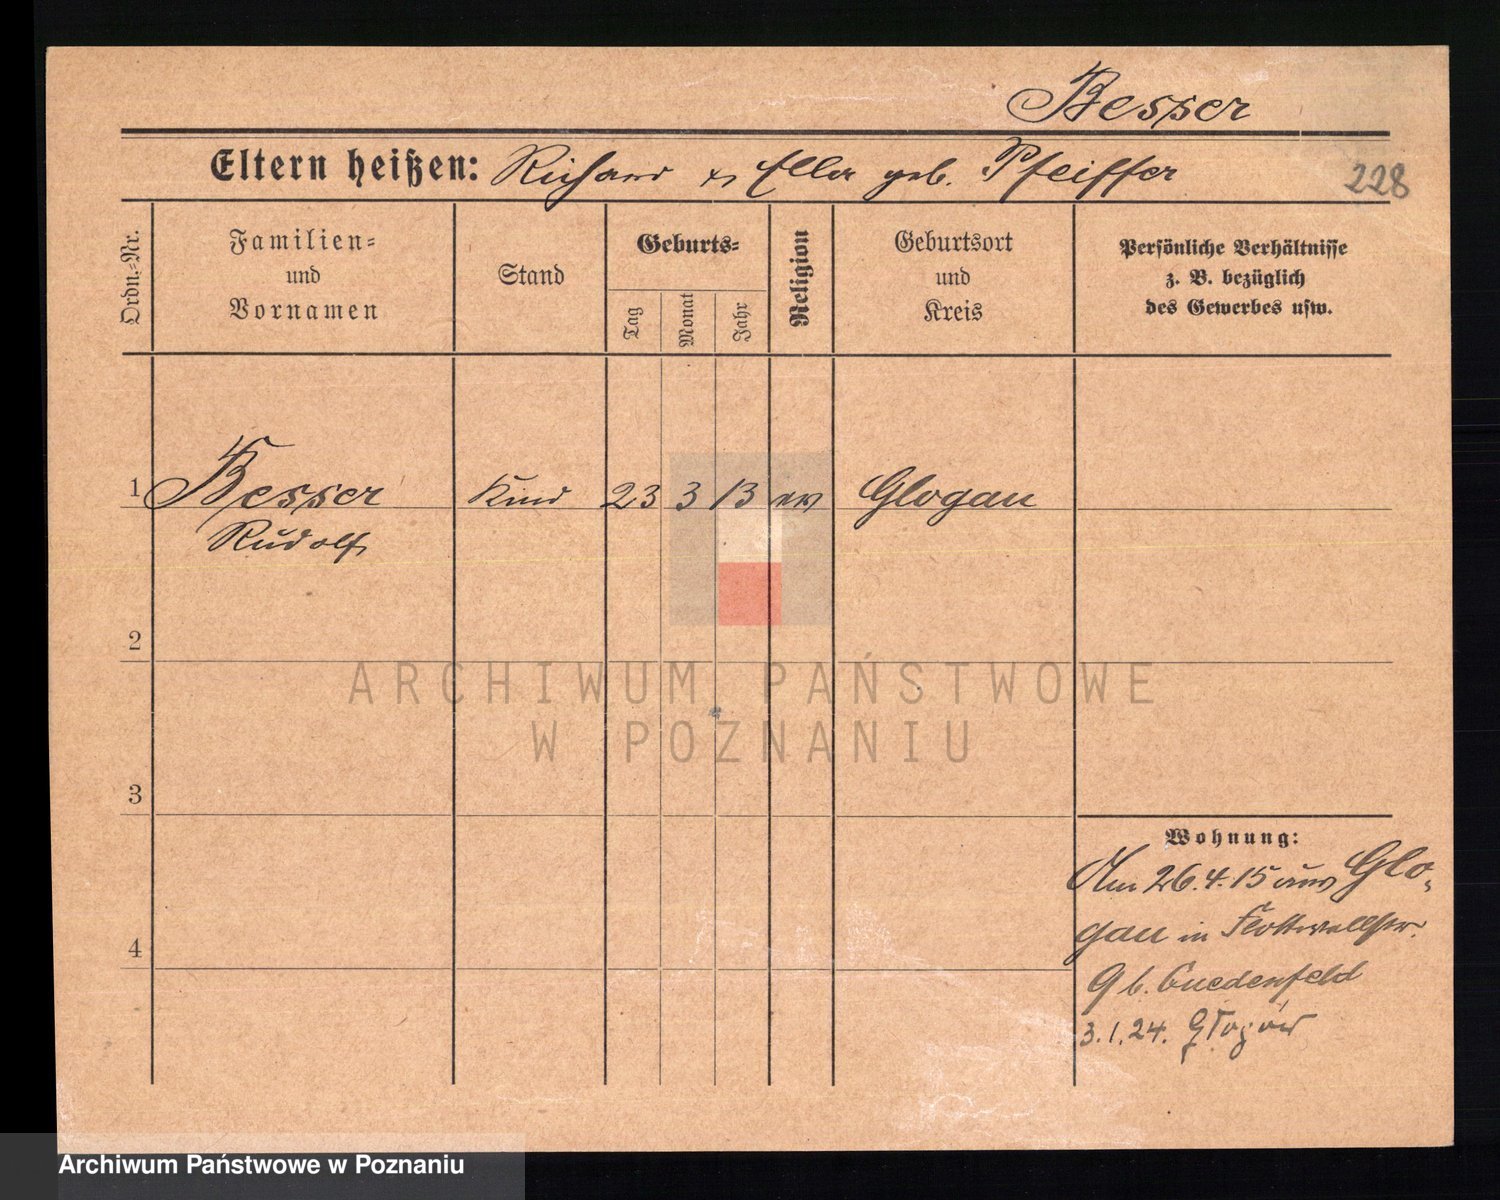 Besser
Eltern heißen: Richard u Ella geb. Pfeiffer
228
Ordn.-Nr.
Familien-
und
Vornamen
Stand
Geburts-
Tag
Monat
Jahr
Religion
Geburtsort
und
Kreis
Persönliche Verhältnisse
z. B. bezüglich
des Gewerbes usw.
1 Besser Kind 23 3 13 ev Glogau
Rudolf
2
3
4
Wohnung:
Am 26.4.15 aus Glo-
gau in Flottwellstr.
9 b. Guedenfeld
3.1.24. Głogów
ARCHIWUM PAŃSTWOWE
W POZNANIU
Archiwum Państwowe w Poznaniu